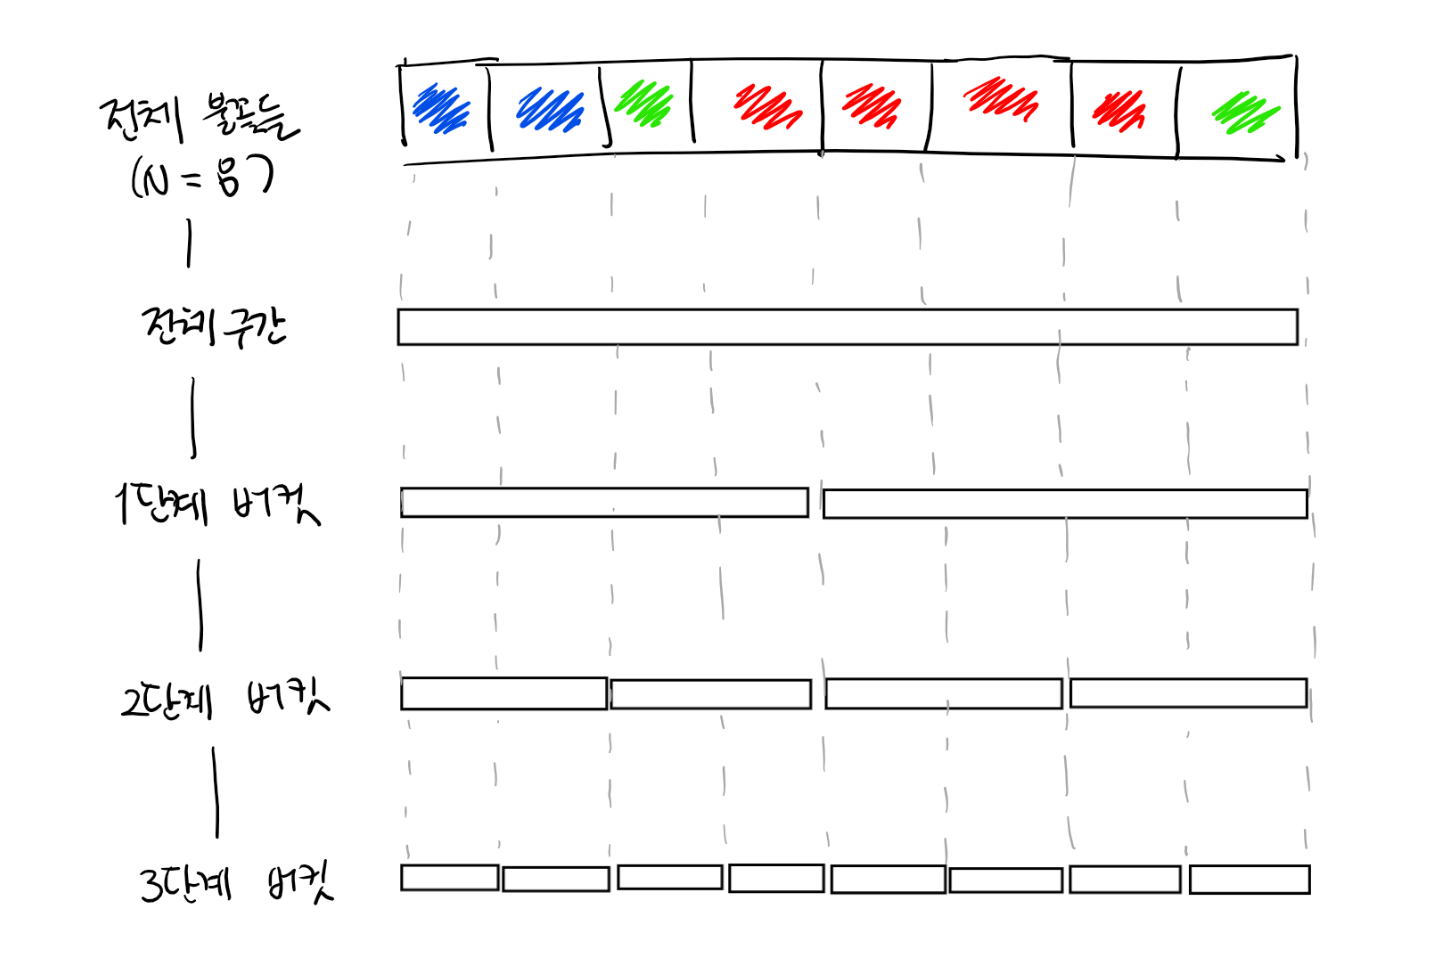 전체 불꽃들
(N = 8)
전체 구간
1단계 버킷
2단계 버킷
3단계 버킷